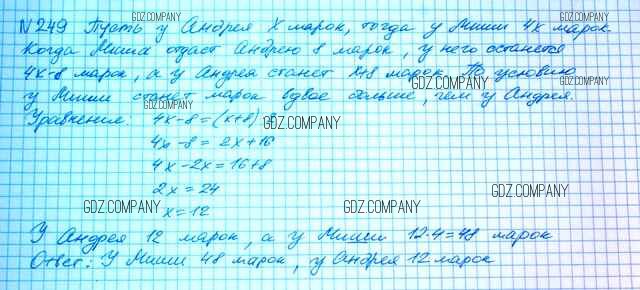 N 249 Пусть у Андрея x марок, тогда у Миши 4x марок.
Когда Миша отдаст Андрею 8 марок, у него останется
4x-8 марок, а у Андрея станет x+8 марок. По условию
у Миши станет марок вдвое больше, чем у Андрея.
Уравнение: 4x-8=(x+8)·2
4x-8=2x+16
4x-2x=16+8
2x=24
x=12
У Андрея 12 марок, а у Миши 12·4=48 марок
Ответ: У Миши 48 марок, у Андрея 12 марок
GDZ.COMPANY
GDZ.COMPANY
GDZ.COMPANY
GDZ.COMPANY
GDZ.COMPANY
GDZ.COMPANY
GDZ.COMPANY
GDZ.COMPANY
GDZ.COMPANY
GDZ.COMPANY